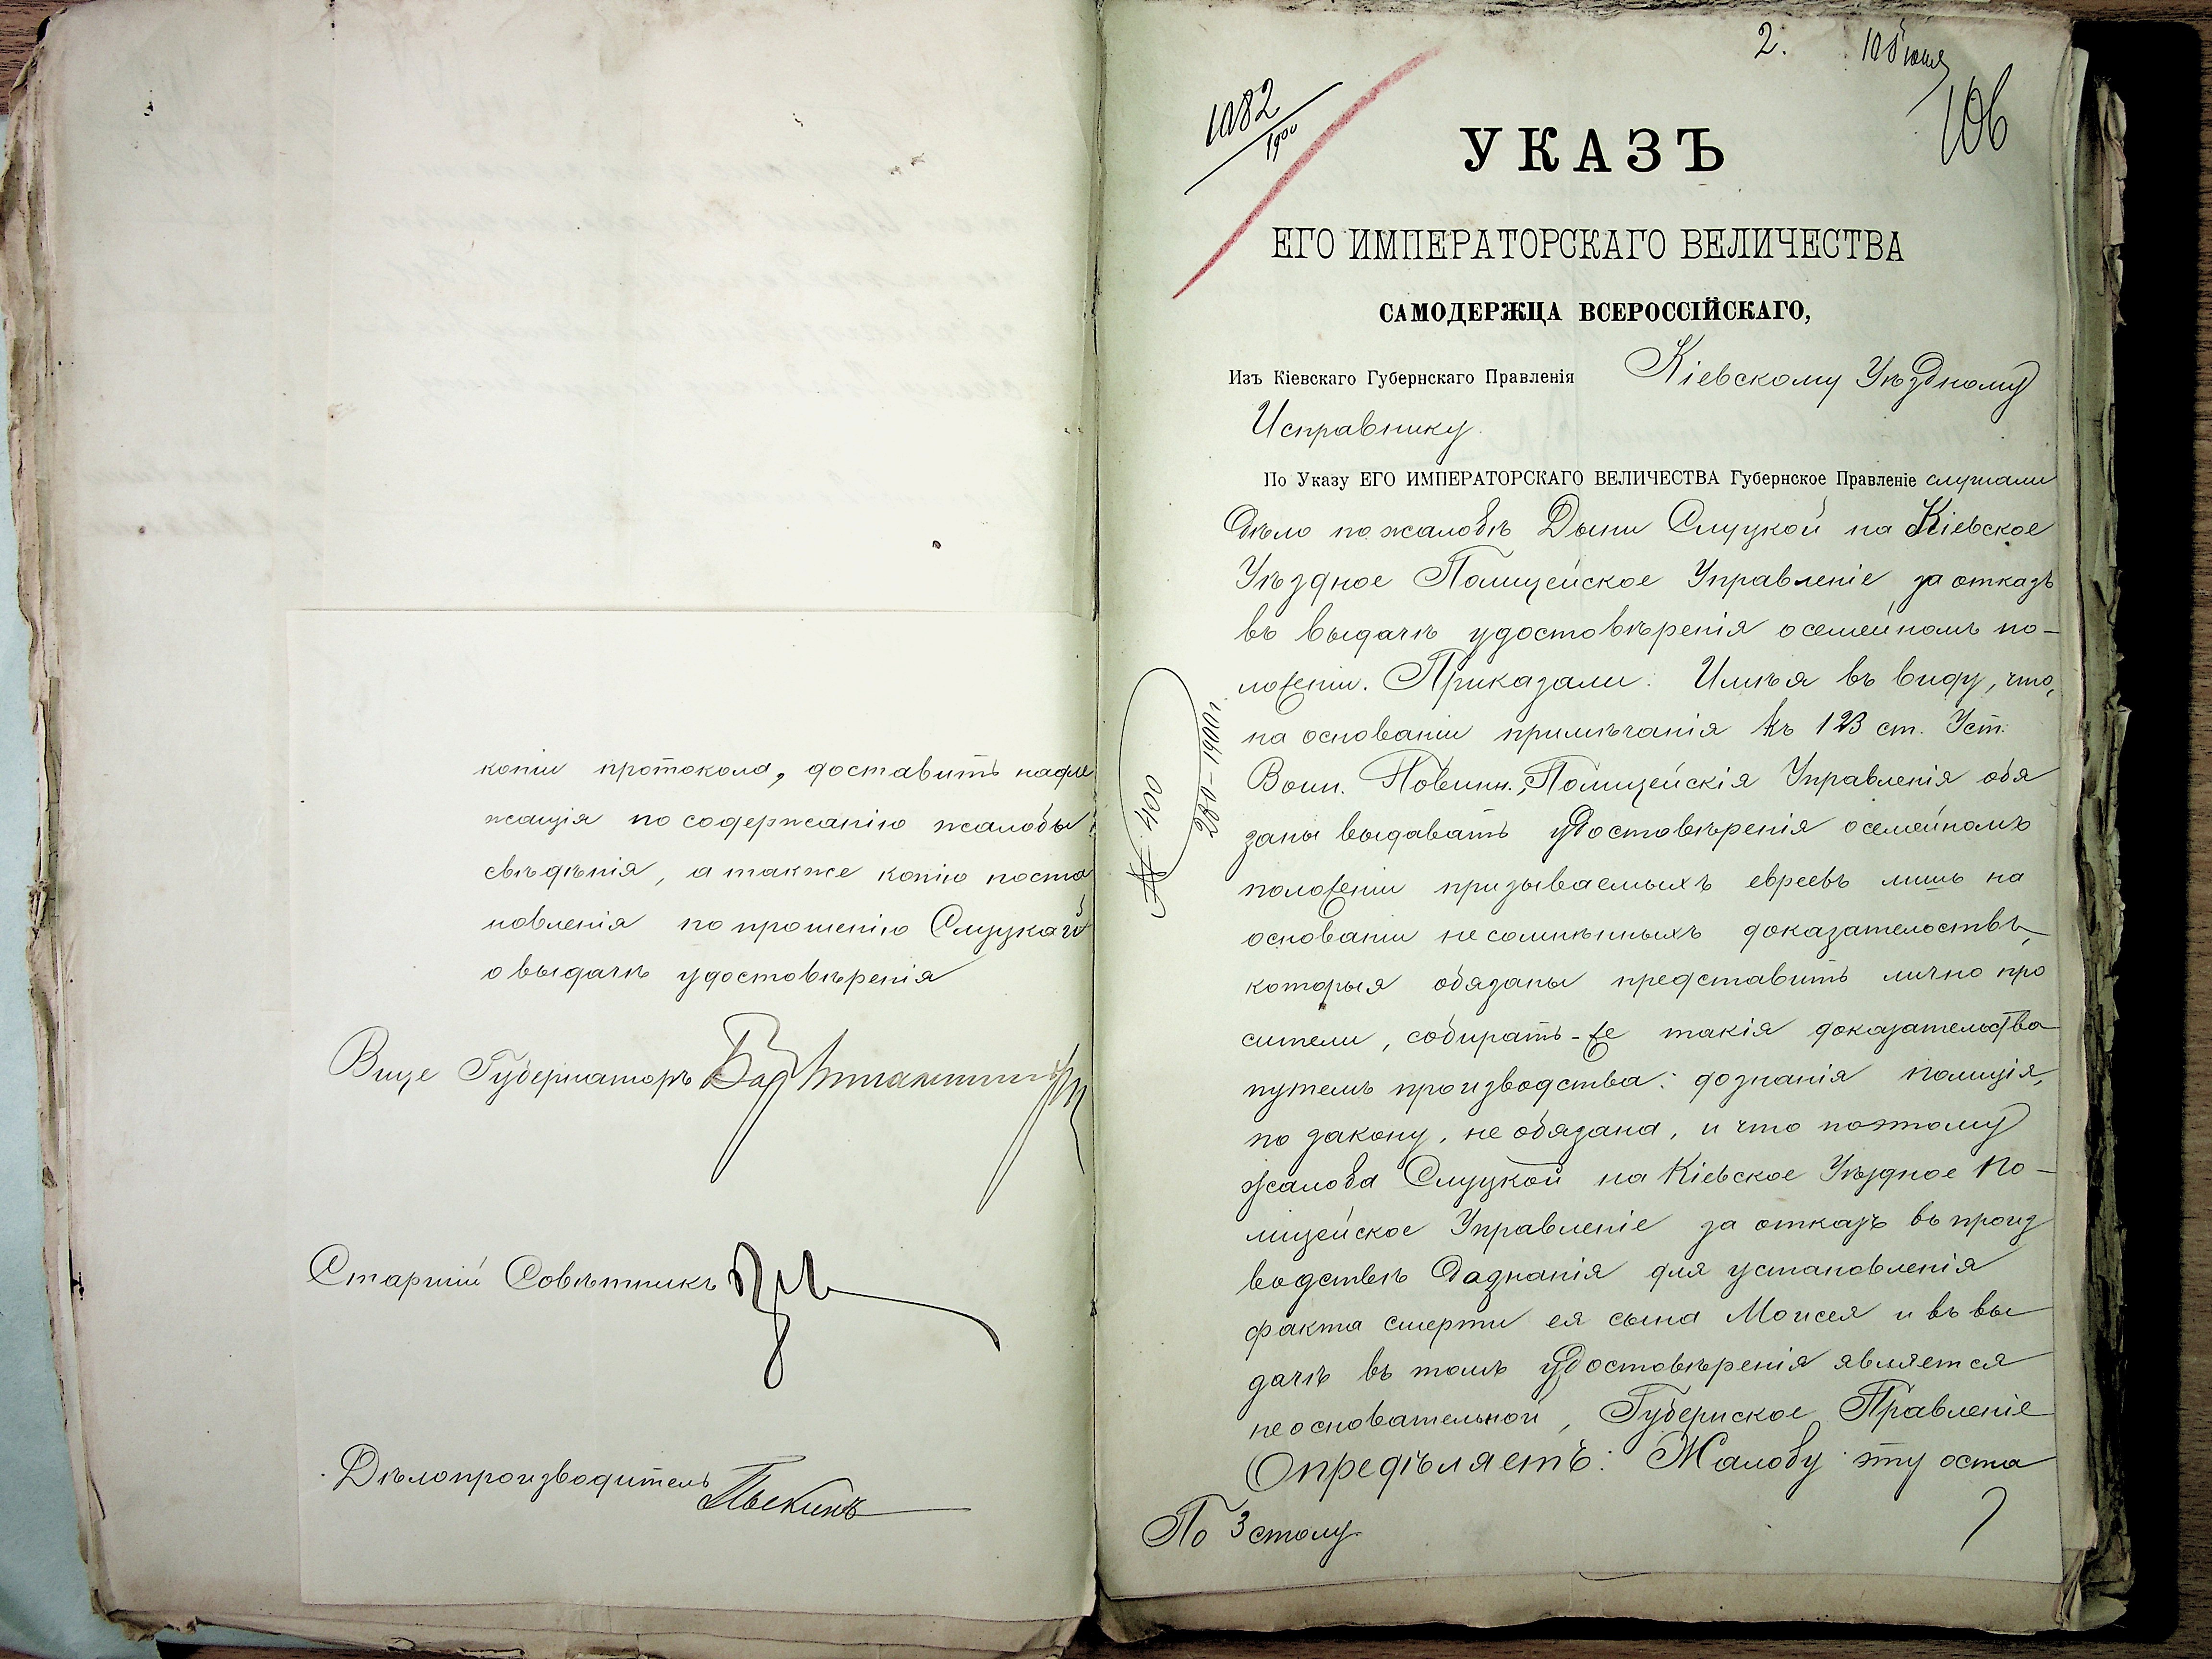 копіи протокола, доставить надле
жащія по содержанію жалобы
свѣдѣнія, а также копію поста
новленія по прошенію Слуцкой
о выдачѣ удостовѣренія
Вице Губернаторъ
Старшій Совѣтникъ
Дѣлопроизводитель
2. 10 Іюня
106
1082
1900
УКАЗЪ
ЕГО ИМПЕРАТОРСКАГО ВЕЛИЧЕСТВА
САМОДЕРЖЦА ВСЕРОССІЙСКАГО,
Изъ Кіевскаго Губернскаго Правленія Кіевскому Уѣздному
Исправнику.
По Указу ЕГО ИМПЕРАТОРСКАГО ВЕЛИЧЕСТВА Губернское Правленіе слушали
дѣло по жалобѣ Двыни Слуцкой на Кіевское
Уѣздное Полицейское Управленіе за отказъ
въ выдачѣ удостовѣренія о семейномъ по-
ложеніи. Приказали: Имѣя въ виду, что,
на основаніи примѣчанія къ 123 ст. Уст.
Воин. Повинн., Полицейскія Управленія обя
заны выдавать удостовѣренія о семейномъ
положеніи призываемыхъ евреевъ лишь на
основаніи несомнѣнныхъ доказательствъ,
которыя обязаны представить лично про
сители, собирать-же такія доказательства
путемъ производства дознанія полиція,
по закону, не обязана, и что поэтому
жалоба Слуцкой на Кіевское Уѣздное По-
лицейское Управленіе за отказъ въ произ
водствѣ дознанія для установленія
факта смерти ея сына Моисея и въ вы
дачѣ въ томъ удостовѣренія является
неосновательной, Губернское Правленіе
Опредѣляетъ: Жалобу эту оста
По 3 столу
№ 400
280-1900г.